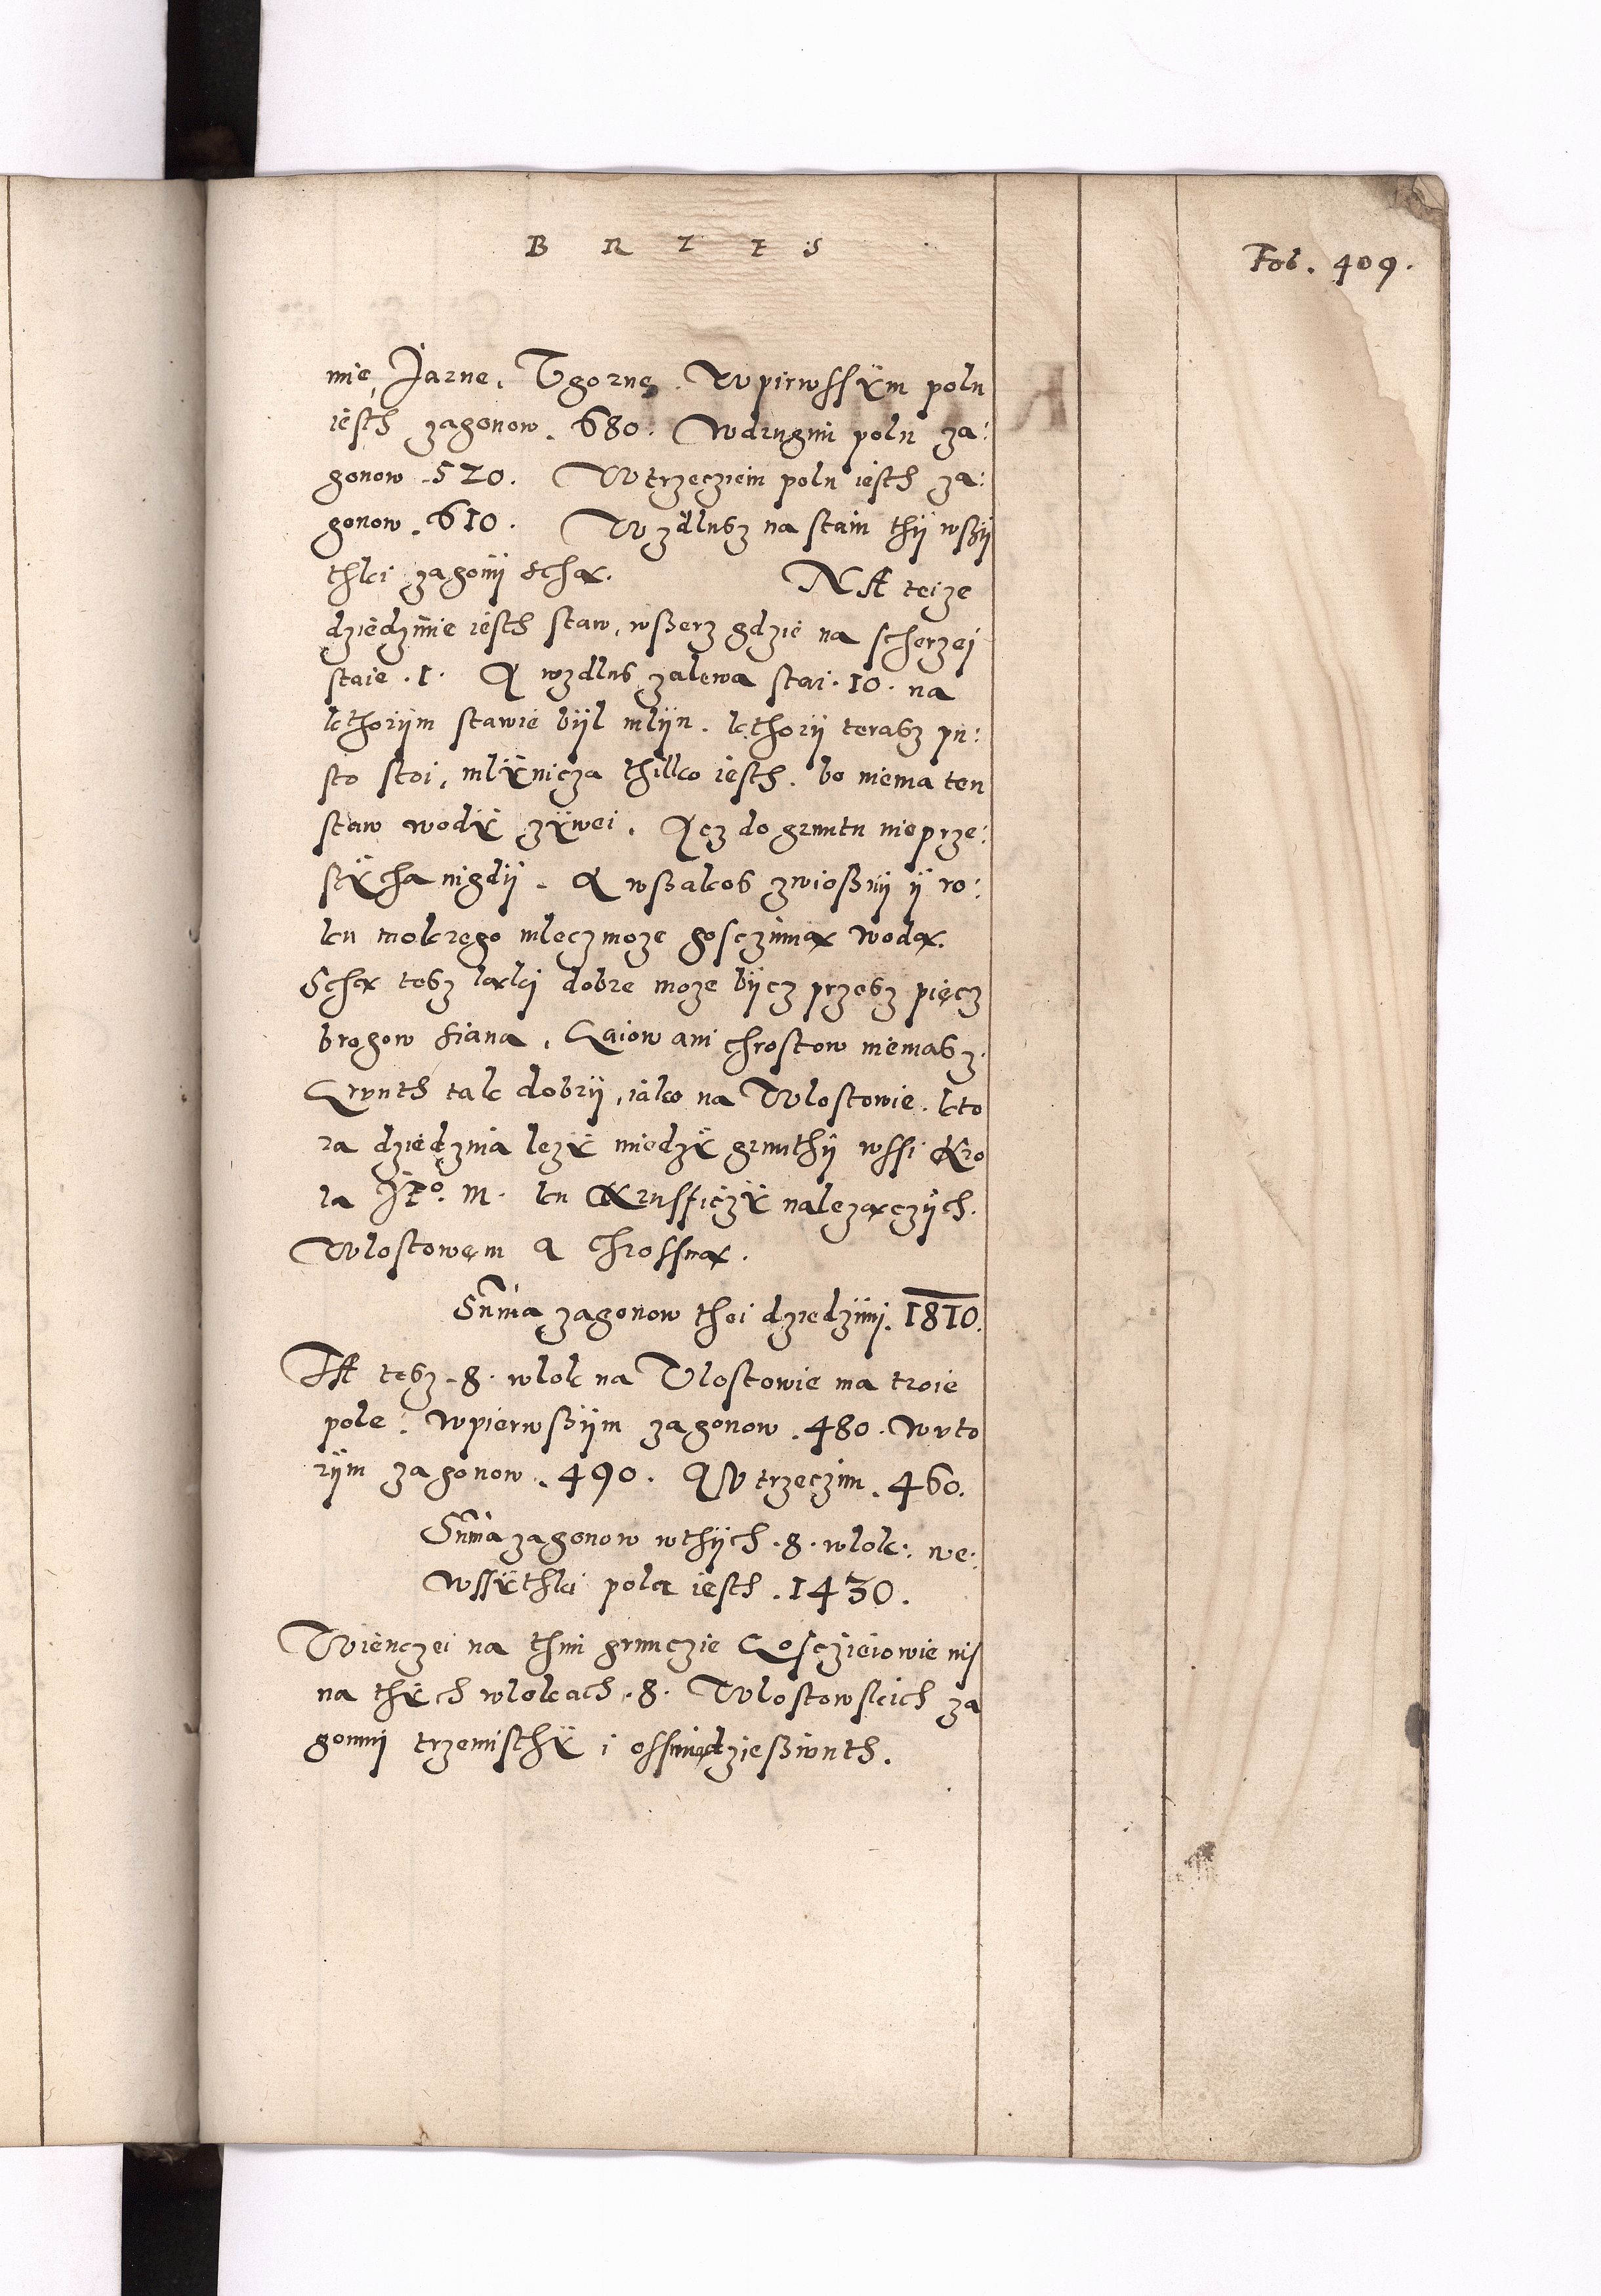 B R I I S
Fol. 409.
mię, Jarne, Vgorne. W pirwssÿm polu
iesth zagonow. 680. Wdrugim polu za:
gonow. 520. W trzecziem polu iesth za:
gonow. 610. W zdlusz na staiu thÿ wszÿ
thki zagonÿ scha.
NA teize
dziedzinie iesth staw, wßerz gdzie na scherzej
staie .1. A wzdlus zalewa stai. 10. na
kthorÿm stawie bÿl mlÿn. kthorÿ terasz pu:
sto stoi, mlÿnicza thilko iesth. bo niema ten
staw wodÿ zÿwei. Acz do gruntu nieprze:
sÿcha nigdÿ. A wßakos zwioßnÿ ÿ ro:
ku mokrego mlecz moze gosczinna woda.
Scha tesz laki dobre moze bÿcz przesz pięcz
brogow siana, Gaiow ani chrostow niemasz.
Grunth tak dobrÿ, iako na Wlostowie. kto
ra dziedzina lezÿ miedzÿ grunthÿ wssi Kro
la J°. M. ku Krussficzÿ nalezaczÿch.
Wlostowem a chrossna.
Sūma zagonow thei dziedzinÿ. 1810.
TA tesz. 8. wlok na Vlostowie ma troie
pole. W pierwßÿm zagonow. 480. W vto
rÿm zagonow. 490. A W trzeczim. 460.
Sūma zagonow wthÿch. 8. wlok: we:
wssÿthki pola iesth. 1430.
Wienczei na thim grunczie Gosczieiowie nis
na thÿch wlokach. 8. Wlostowskich za
gonnÿ trzemisthÿ i ossmdziesziwnth.